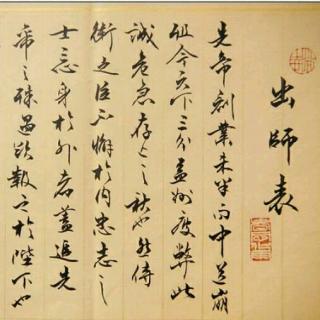 出師表
先帝創業未半而中道崩
殂今天下三分益州疲弊此
誠危急存亡之秋也然侍
衛之臣不懈於内忠志之
士忘身於外者蓋追先
帝之殊遇欲報之於陛下也